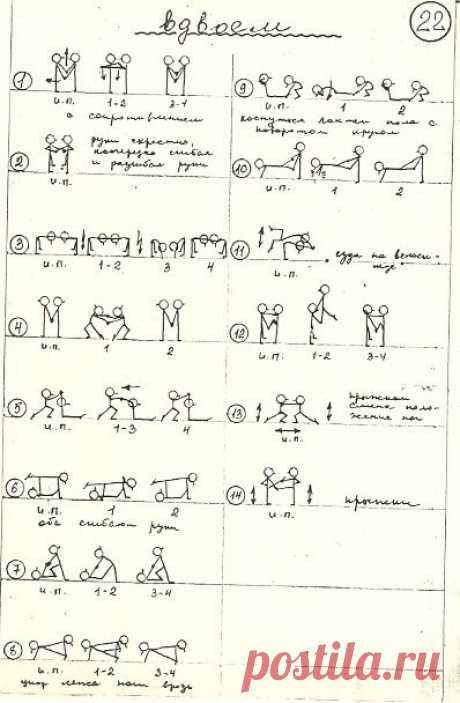 вдвоем
22
1
и.п. 1-2 3-4
с сопротивлением
2
руки скрестно,
поочередно сгибая
и разгибая руки
и.п.
3
и.п. 1-2 3 4
4
и.п. 1 2
5
и.п. 1-3 4
6
и.п. 1 2
оба сгибают руки
7
и.п. 1-2 3-4
8
и.п. 1-2 3-4
упор лежа ноги врозь
9
и.п. 1 2
коснуться локтем пола с
поворотом кругом
10
и.п. 1 2
11
езда на велоси-
педе
и.п.
12
и.п. 1-2 3-4
13
прыжком
смена поло-
жения ног
и.п.
14
прыжки
и.п.
postila.ru